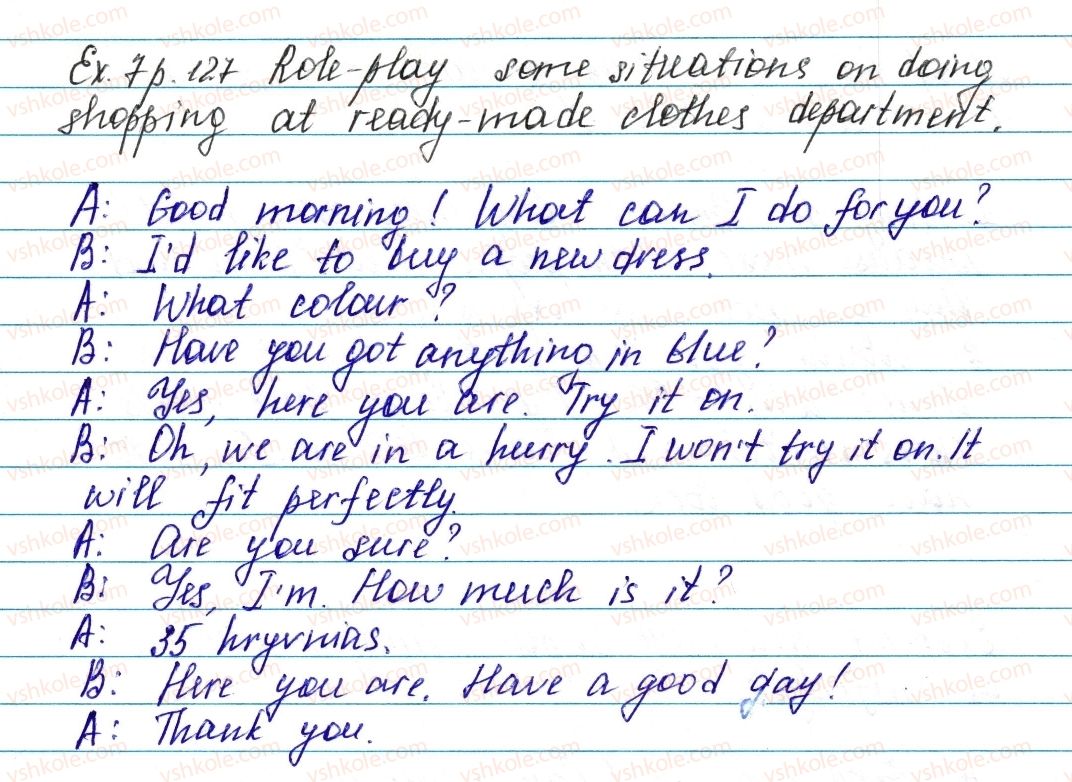 Ex. 7 p. 127 Role-play some situations on doing
shopping at ready-made clothes department.
A: Good morning! What can I do for you?
B: I'd like to buy a new dress.
A: What colour?
B: Have you got anything in blue?
A: Yes, here you are. Try it on.
B: Oh, we are in a hurry. I won't try it on. It
will fit perfectly.
A: Are you sure?
B: Yes, I'm. How much is it?
A: 35 hryvnias.
B: Here you are. Have a good day!
A: Thank you.
vshkole.com